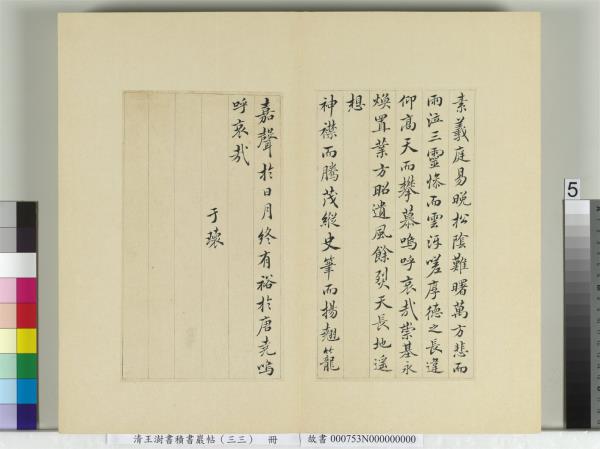 素羲庭易晚松陰難曙萬方悲而
雨泣三靈慘而雲浮嗟厚德之長違
仰高天而攀慕嗚呼哀哉崇基永
煥置業方昭遺風餘烈天長地遥
想
神襟而騰茂縱史筆而揚翹籠
嘉聲於日月終有裕於唐堯嗚
呼哀哉
于瓌
清王澍書積書巖帖(三三) 冊
故書 000753N000000000
5